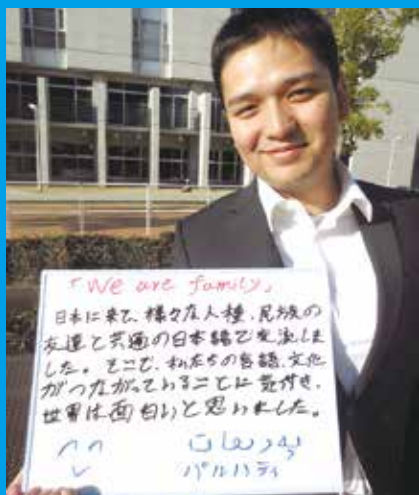 「We are family」
日本に来て、様々な人種、民族の
友達と共通の日本語で交流しま
した。そこで、私たちの言語、文化
がつながっていることに気付き、
世界は面白いと思いました。
パルハティ